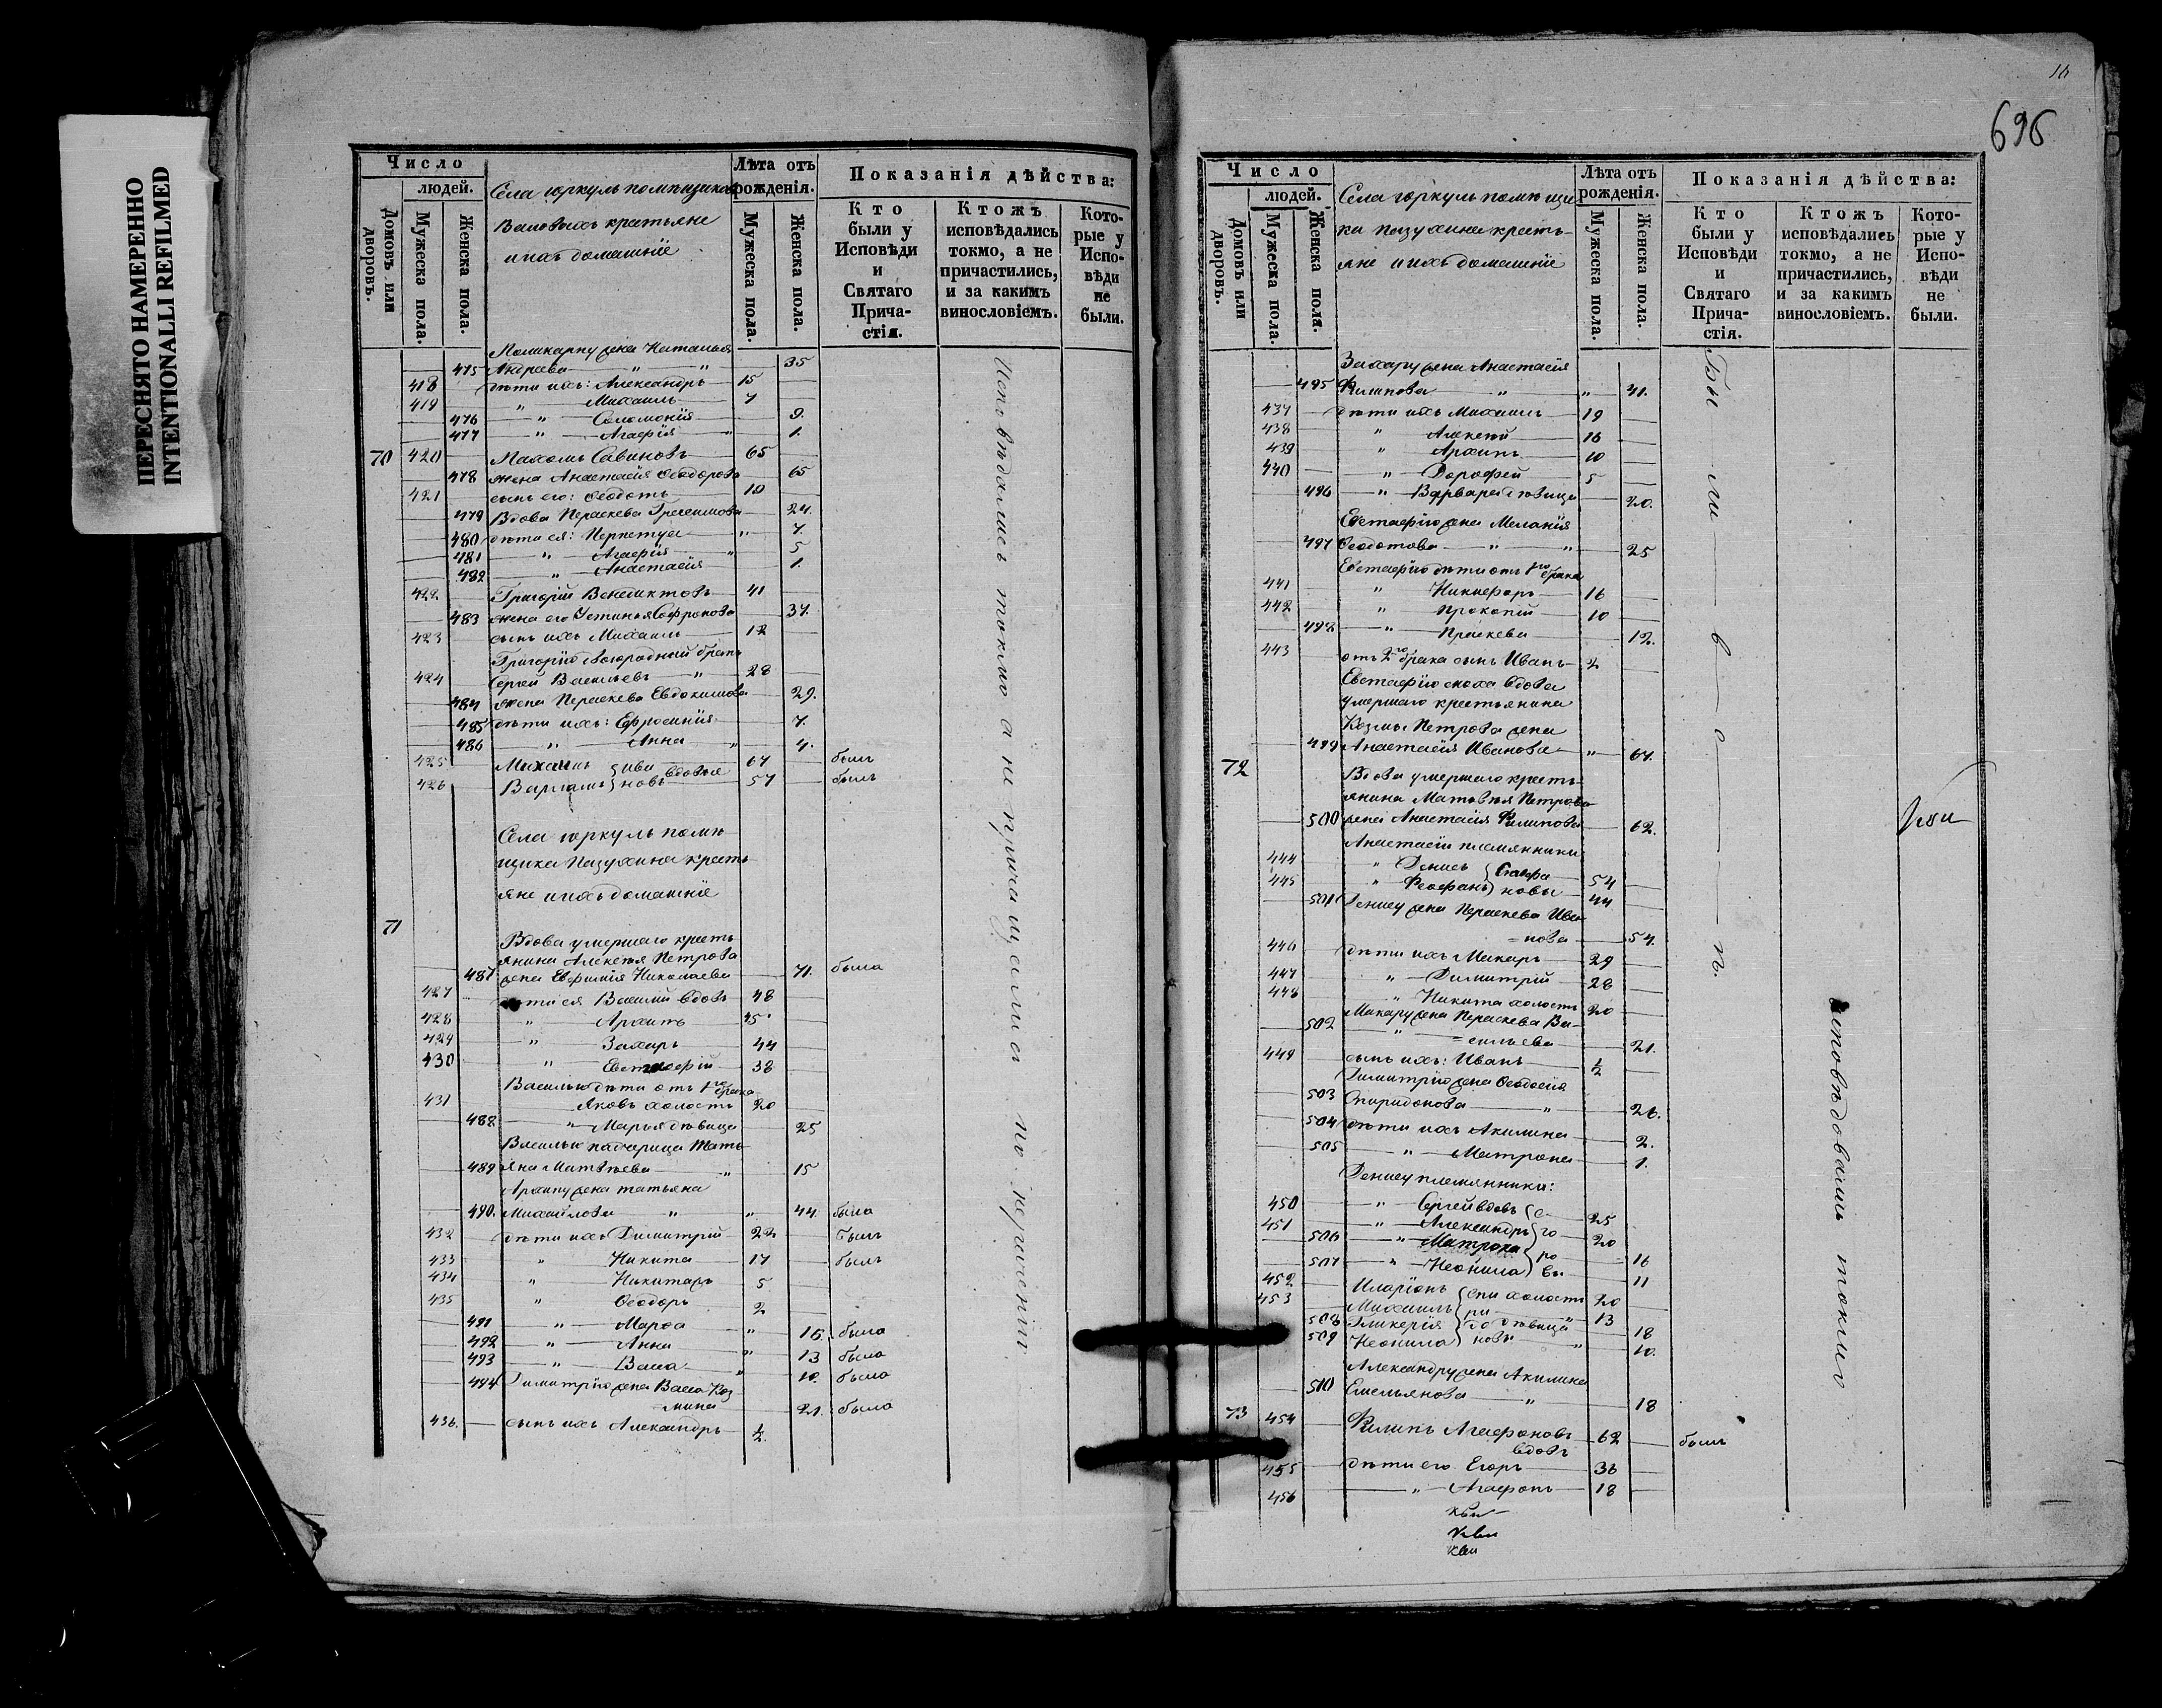 ПЕРЕСНЯТО НАМЕРЕННО
INTENTIONALLI REFILMED
Число
людей.
Домовъ или дворовъ.
Мужеска пола.
Женска пола.
Села Юркуль помѣщиковъ
крестьяне
и ихъ домашніе
Лѣта отъ рожденія.
Мужеска пола.
Женска пола.
Показанія дѣйства:
Кто были у Исповѣди и Святаго Прича-стія.
Ктожъ исповѣдались токмо, а не причастились, и за какимъ винословіемъ.
Кото-рые у Испо-вѣди не были.
Поликарпу жена Наталья
475 Андреева " " 35
418 дѣти ихъ: Александръ 15
419 " Михаилъ 7
476 " Соломонія 9.
477 " Агафія " 1.
70 420 Пахомъ Савиновъ 65
478 жена Анастасія Ѳеодорова 65
421 сынъ его: Ѳеодотъ 19
479 Вдова Параскева 24.
480 дѣти ея: Перпетуа " 7.
481 " Агафія " 5
482 " Анастасія 1.
422 Григорій Венедиктовъ 41
483 жена его Устинья Софронова 37.
423 сынъ ихъ Михаилъ 12
Григорію двоюродный братъ
424 Сергей Васильевъ " 28
484 жена Параскева Евдокимова 29.
485 дѣти ихъ: Ефросинія 7.
486 " Анна " 4.
425 Михаилъ 67 былъ
426 Варламъ вдовые 57 былъ
Исповѣдались токмо а не причащались по нерачению
Села Юркуль помѣ
щика Пазухина кресть
яне и ихъ домашніе
71
Вдова умершаго кресть
янина Алексѣя Петрова
487 жена Евфимія Николаева 71. была
427 дѣти ея Василій вдовъ 48
428 " Архипъ 45
429 " Захаръ 44
430 " Евстафій 38
Василью дѣти отъ 1го брака
431 Яковъ холостъ 20
488 " Марья дѣвица 25
Василью падчерица Тать
489 яна Матвѣева " 15
Архипу жена Татьяна
490. Михайлова " " 44 была
432 дѣти ихъ Димитрій 22 былъ
433 " Никита 17 былъ
434 " 5
435 " Ѳеодоръ 2
491 " Марѳа " 16. была
492 " Анна " 13 была
493 " Васса " 10. была
494 Димитрію жена Васса Коз
мина 21. была
436. сынъ ихъ Александръ ½.
696
Число
людей.
Домовъ или дворовъ.
Мужеска пола.
Женска пола.
Села Юркуль помѣщи
ка Пазухина кресть-
яне и ихъ домашніе
Лѣта отъ рожденія.
Мужеска пола.
Женска пола.
Показанія дѣйства:
Кто были у Исповѣди и Святаго Прича-стія.
Ктожъ исповѣдались токмо, а не причастились, и за какимъ винословіемъ.
Кото-рые у Испо-вѣди не были.
Захару жена Анастасія
495 Филипова " " 41.
437 дѣти ихъ Михаилъ 19
438 " Алексѣй 16
439 " Архипъ 10
440 " Дорофей 5
496 " Варвара дѣвица 20.
Евстафію жена Меланія
497 Ѳеодотова " " 25
Евстафію дѣти отъ 1го брака
441 " Никифоръ 16
442 " Прокопій 10
498 " Праскева 12.
443 отъ 2го брака сынъ Иванъ 2
Евстафію сноха вдова
умершаго крестьянина
Козмы Петрова жена
499 Анастасія Иванова " 67.
72
Вдова умершаго кресть
янина Матвѣя Петрова
500 жена Анастасія Филипова 62.
Анастасіи племянники
444 " Денисъ 54
445 " Феофанъ 44
501 Денису жена Параскева Ива
=нова 54.
446 дѣти ихъ Макаръ 29
447 " Димитрій 28
448 " Никита холостъ 20
Макару жена Параскева Ва-
502 " =сильева 21.
449 сынъ ихъ: Иванъ ½
Димитрію жена Ѳеодосія
503 Спиридонова " 26.
504 дѣти ихъ Акилина 2.
505 " Матрона 1.
Денису племянники:
450 " Сергей вдовъ 25
451 " Александръ 20
506 " Матрона 16
507 " Неонила 11
452 Иларіонъ холостъ 20
453 Михаилъ " 13
508 Гликерія дѣвица 18
509 Неонила " 10.
Александру жена Акилина
510 Емельянова " 18
73 454 Филипъ Агафоновъ
вдовъ 62 былъ
455 дѣти его Егоръ 36
456 " Агафонъ 18
исповѣдовались токмо